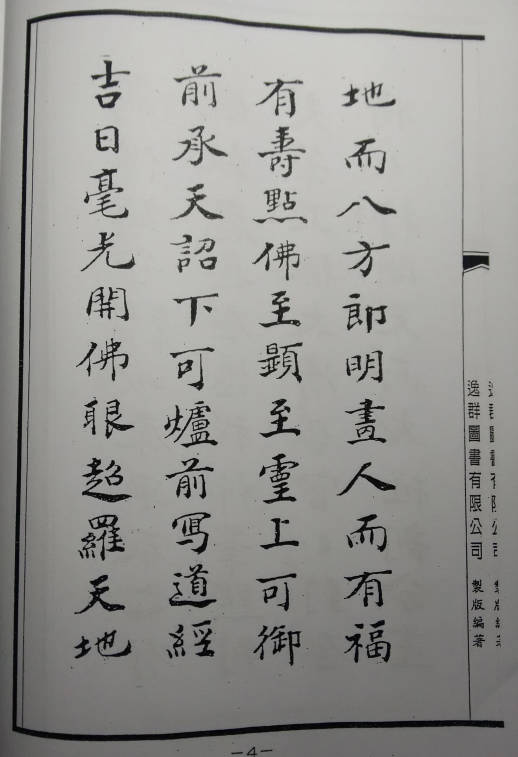 地而八方郎明畫人而有福
有壽點佛至顯至靈上可御
前承天詔下可爐前寫道經
吉日毫光開佛眼超羅天地
逸群圖書有限公司 製版編著
—4—